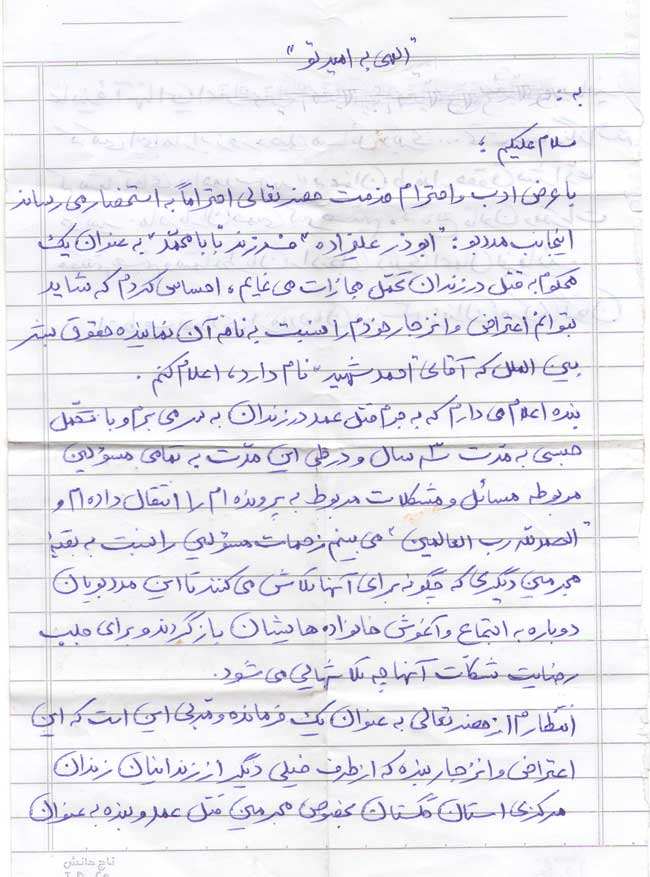 "الهی به امید تو"
به:
سلام علیکم؛
با عرض ادب و احترام خدمت حضرتعالی احتراماً به استحضار می رساند
اینجانب مددجو: "ابوذر علیزاده" فرزند "بابامحمد" به عنوان یک
محکوم به قتل در زندان تحمل مجازات می نمایم، احساس کردم که شاید
بتوانم اعتراض و انزجار خودم را نسبت به نامه آن نماینده حقوق بشر
بین الملل که آقای "احمد شهید" نام دارد، اعلام کنم.
بنده اعلام می دارم که به جرم قتل عمد در زندان به سر می برم و با تحمل
حبسی به مدت سال و در طی این مدّت به تمامی مسؤلین
مربوطه مسائل و مشکلات مربوط به پرونده ام را انتقال داده ام و
"الحمدلله رب العالمین" می بینم زحمات مسؤلین را نسبت به بقیه
مجرمین دیگری که چگونه برای آنها تلاش می کنند تا این مددجویان
دوباره به اجتماع و آغوش خانواده هایشان بازگردند و برای جلب
رضایت شکات آنها چه تلاشهایی می شود.
انتظارم از حضرتعالی به عنوان یک فرمانده و مدّبر این است که این
اعتراض و انزجار بنده که از طرف خیلی دیگر از زندانیان زندان
مرکزی استان گلستان بخصوص مجرمین قتل عمد و بنده به عنوان
تاج دانش